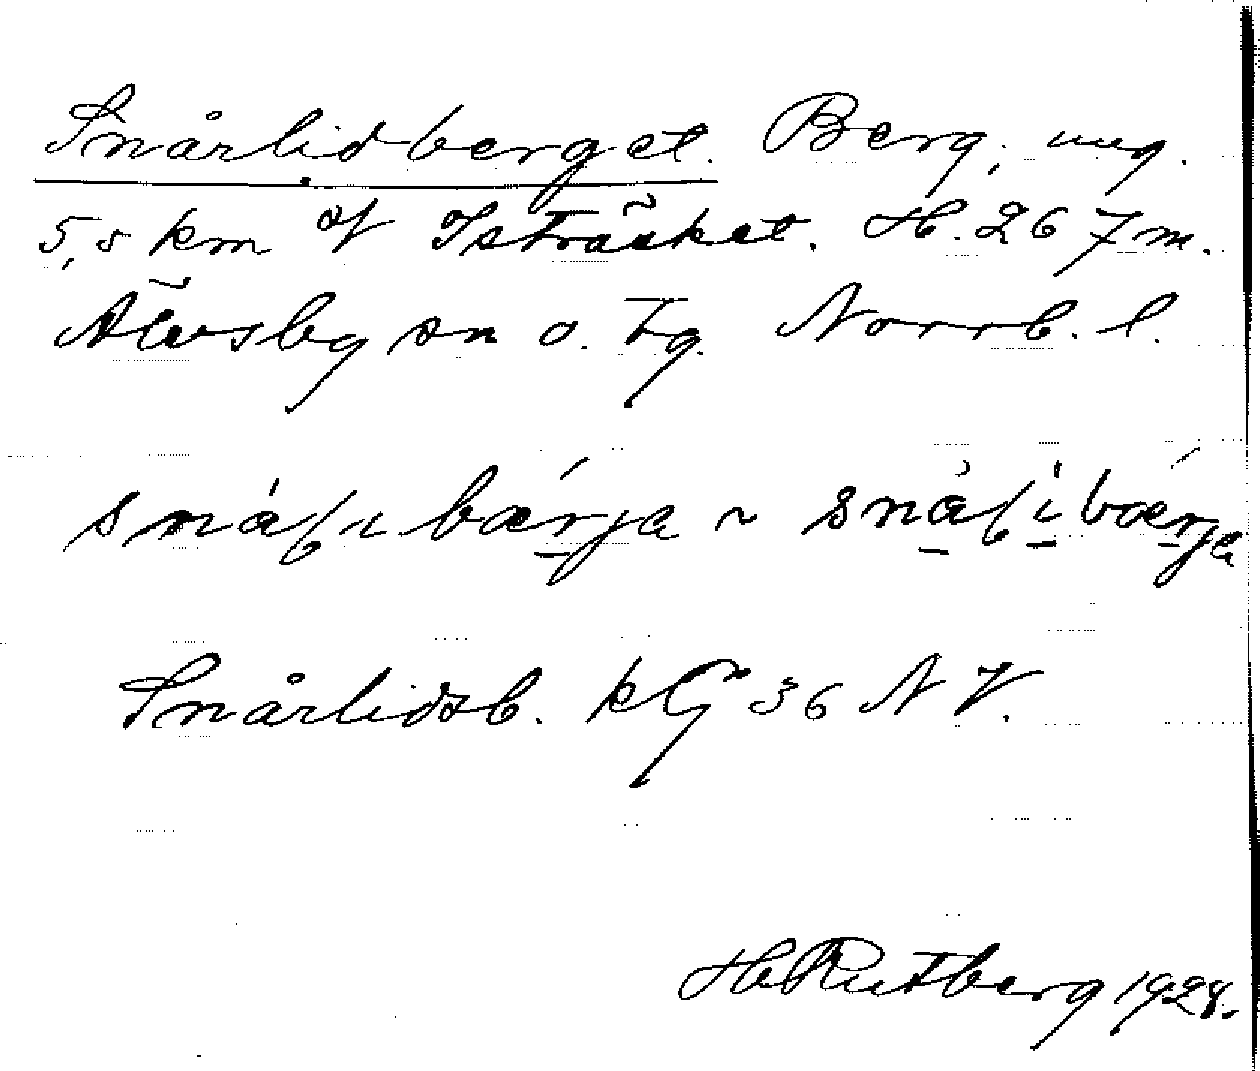 Snårlidberget. Berg, ung.
5,5 km V Isträsket. H. 267 m.
Älvsby sn o. tg. Norrb. l.
bærja ~
Snårlidsb. kG 36 NV.
H Rutberg 1928.